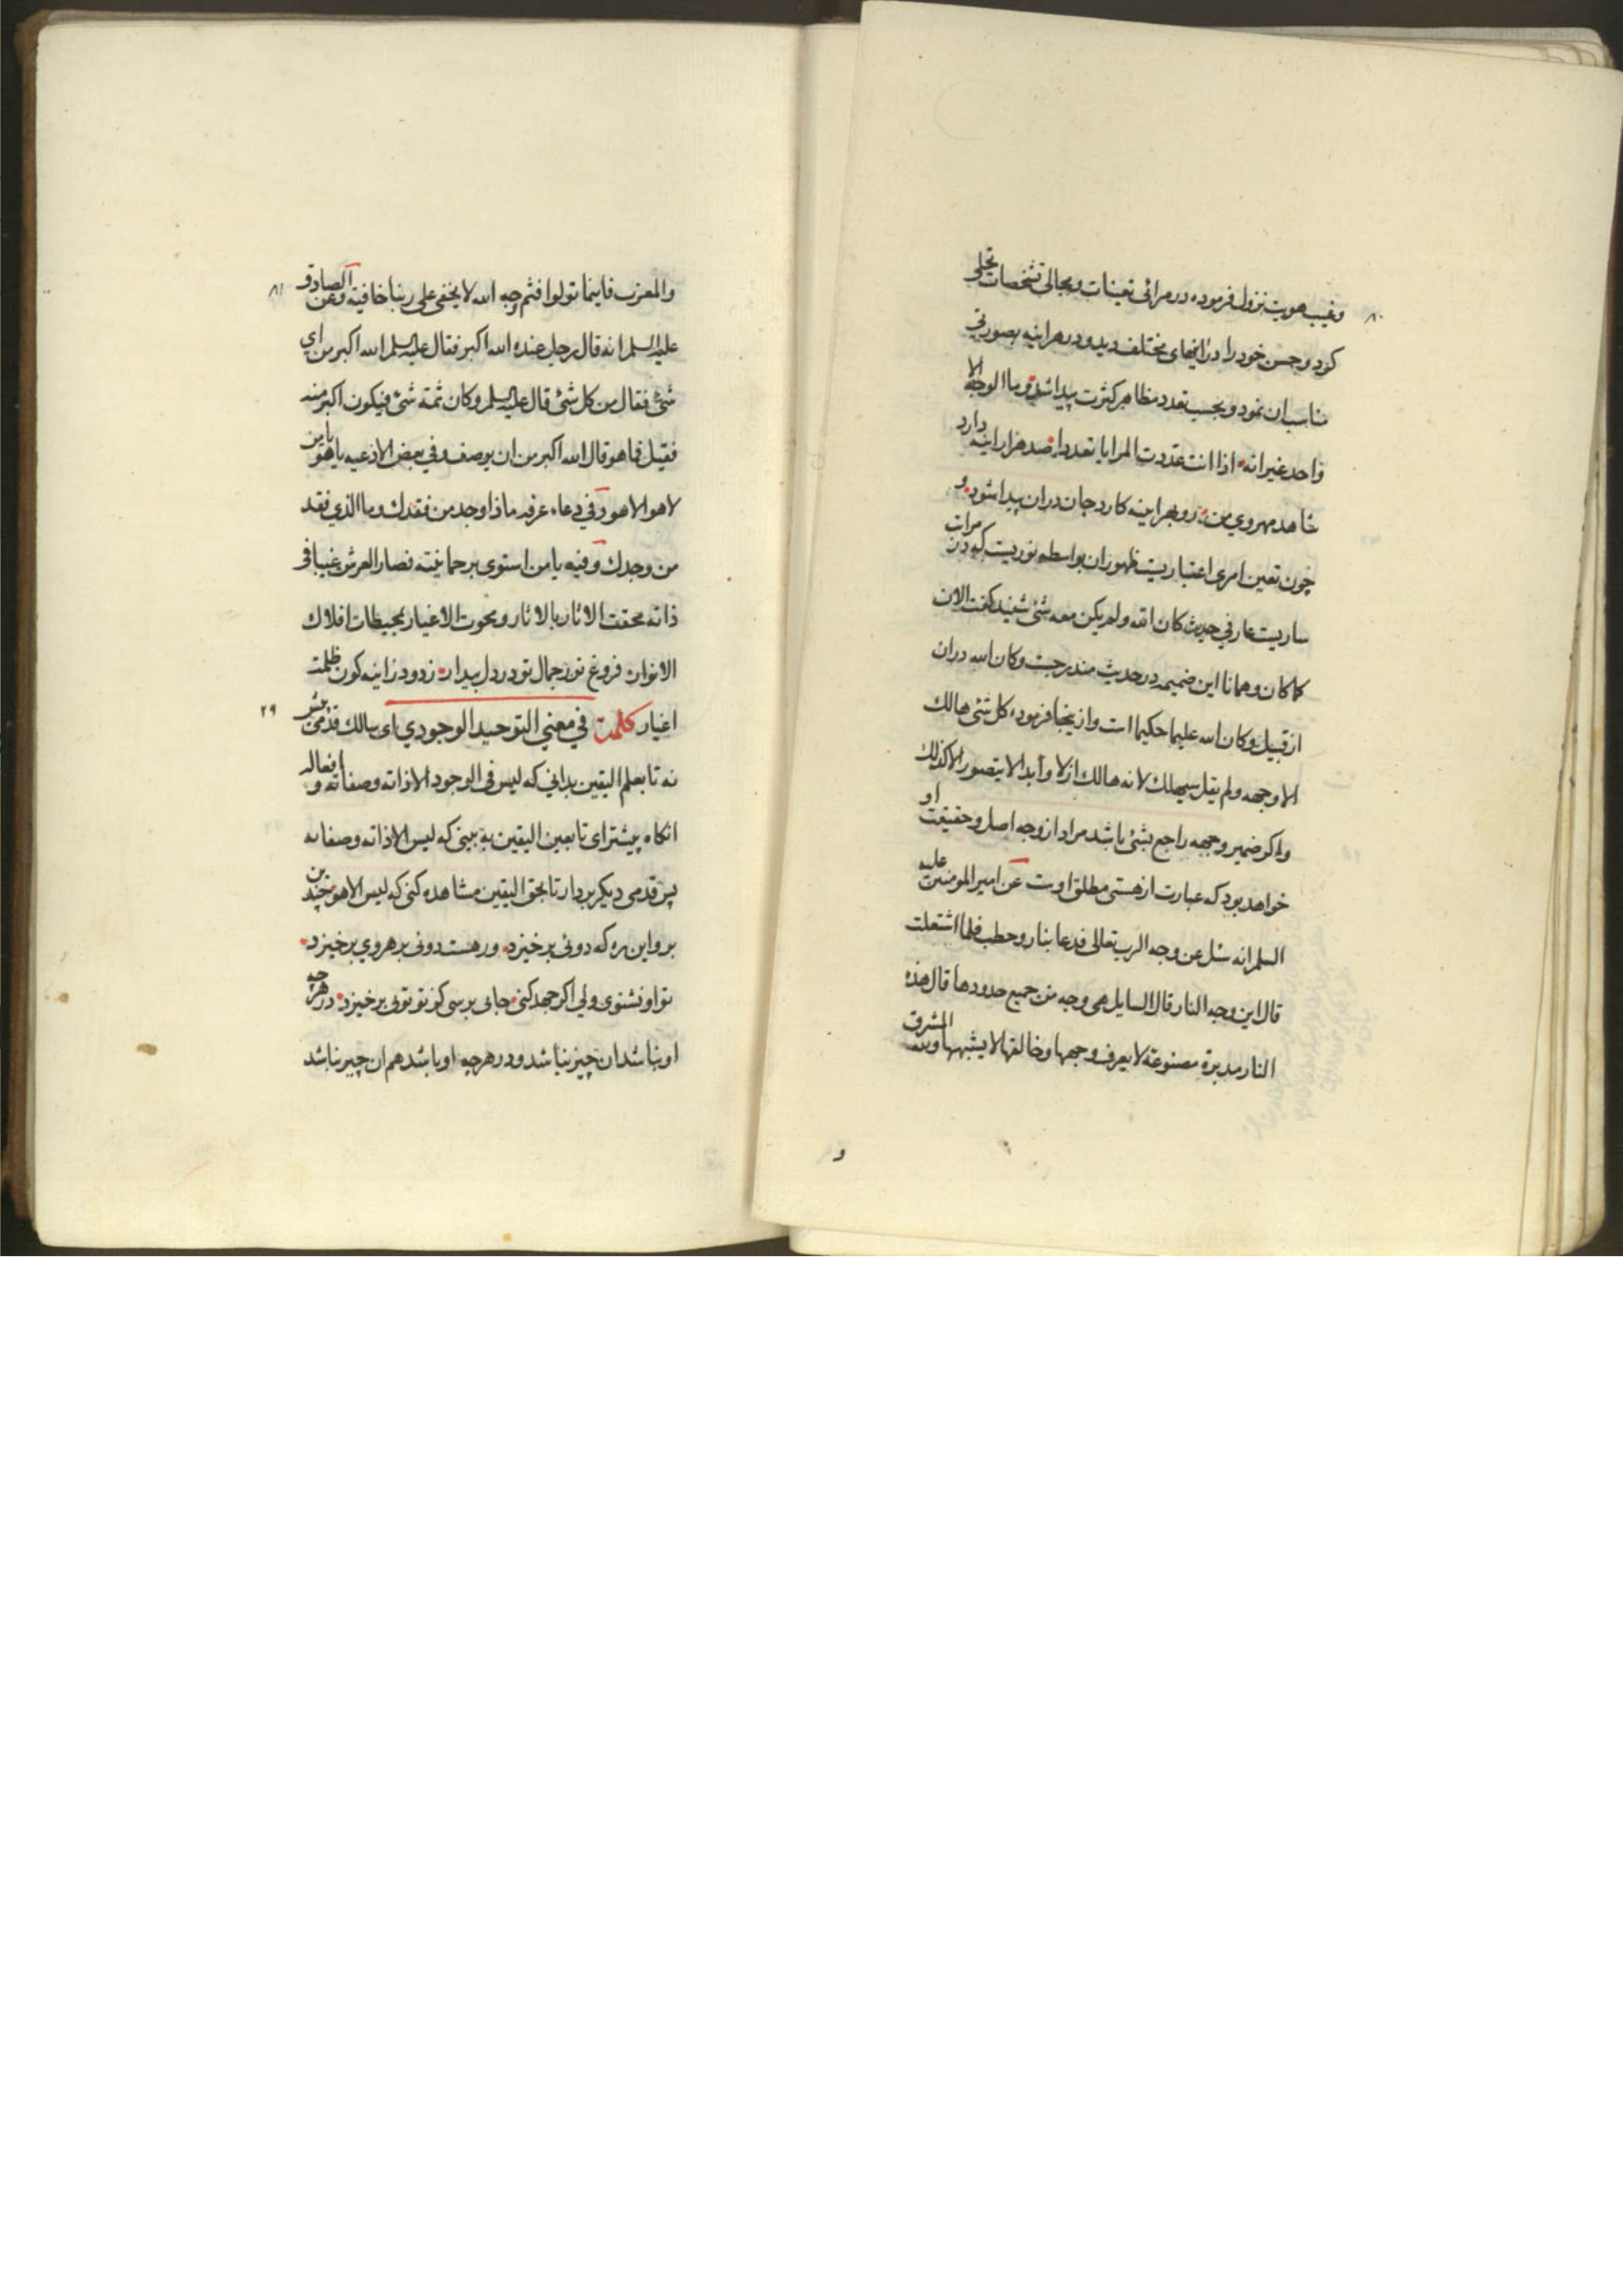 ٨٠
وغیب هویت نزول فرموده در مرائی تعینات و مجالی تشخصات تجلی
کرد و حسن خود را در اینهای مختلف دید و در هر اینه بصورتی
مناسب ان نمود و بحسب تعدد مظاهر کثرت پیدا شد وما الوجه الا
واحد غیر انه اذا انت عددت المرایا تعددا صد هزار اینه دارد
شاهد مهروی من رو بهر اینه کارد جان دران پیدا شود و
چون تعین امری اعتباریت ظهور ان بواسطه نوریست که در مرات
ساریست عارفی حدیث کان الله ولم یکن معه شئ شنید کفت الان
کما کان و همانا این ضمیمه در حدیث مندرجست وکان الله دران
از قبیل وکان الله علیما حکیما است و از ینجا فرموده کل شئ هالك
الا وجهه ولم یقل سیهلك لانه هالك ازلا وابدا لا یتصور الا کذلك
واکر ضمیر وجهه راجع بشئ باشد مراد از وجه اصل و حقیقت او
خواهد بود که عبارت از هستی مطلق اوست عن امیر المومنین علیه
السلم انه سئل عن وجه الرب تعالی فدعا بنار وحطب فلما اشتعلت
قال این وجه النار قال السایل هی وجه من جمیع حدودها قال هذه
النار مدبرة مصنوعة لا یعرف وجهها وخالقها لا یشبهها ولله المشرق
و
٨١
والمغرب فاینما تولوا فثم وجه الله لا یخفی علی ربنا خافیة وعن الصادق
علیه السلم انه قال رجل عنده الله اکبر فقال علیه السلم الله اکبر من ای
شئ فقال من کل شئ قال علیه السلم وکان ثمة شئ فیکون اکبر منه
فقیل فما هو قال الله اکبر من ان یوصف وفی بعض الادعیه یا هو یا من
لا هو الا هو وفی دعاء عرفه ماذا وجد من فقدك وما الذی فقد
من وجدك وفیه یا من استوی برحمانیته فصار العرش غیبا فی
ذاته محقت الاثار بالاثار ومحوت الاغیار بمحیطات افلاك
الانوار فروغ نور جمال تو در دل بیدار زدود زاینه کون ظلمت
اغیار کلمة فی معنی التوحید الوجودی ای سالك قدمی پیش
٢٩
نه تا بعلم الیقین بدانی که لیس فی الوجود الا ذاته وصفاته و افعاله
انکاه پیشتر ای تا بعین الیقین به بینی که لیس الا ذاته وصفاته
پس قدمی دیکر بردار تا بحق الیقین مشاهده کنی که لیس الا هو چندین
برو این ره که دوئی برخیزد ور هست دوئی برهروی برخیزد
تو او نشوی ولی اکر جهد کنی جائی برسی کز تو توئی برخیزد در هر چه
او نباشد ان چیز نباشد و در هر چه او باشد هم ان چیز نباشد